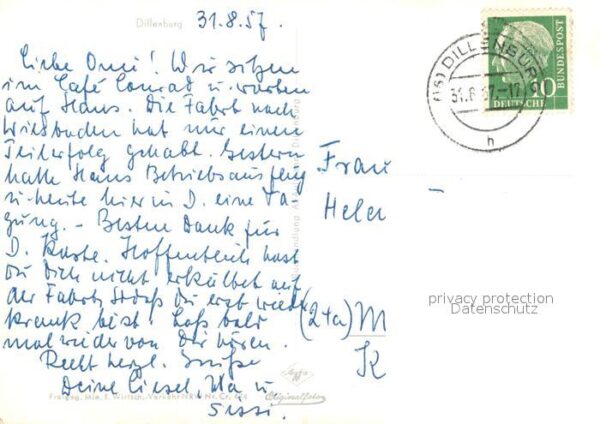 Dillenburg
31.8.57.
Liebe Omi! Wir sitzen
im Café Conrad u. warten
auf Hans. Die Fahrt nach
Wiesbaden hat nur einen
Teilerfolg gehabt. Gestern
hatte Hans Betriebsausflug
u. heute hier in D. eine Ta-
gung. - Besten Dank für
D. Karte. Hoffentlich hast
Du Dich nicht erkältet auf
der Fahrt, sodaß Du erst wieder
krank bist! Laß bald
mal wieder von Dir hören.
Recht herzl. Grüße
Deine Liesel, u
Sissi.
Frau
Helen
(24a) M
K
(16) DILLENBURG
31.8.57.-17
h
DEUTSCHE
BUNDESPOST
10
privacy protection
Datenschutz
Dillenburg
Freigeg. Min. f. Wirtsch. Verkehr NRW Nr. Cr.
Originalfoto